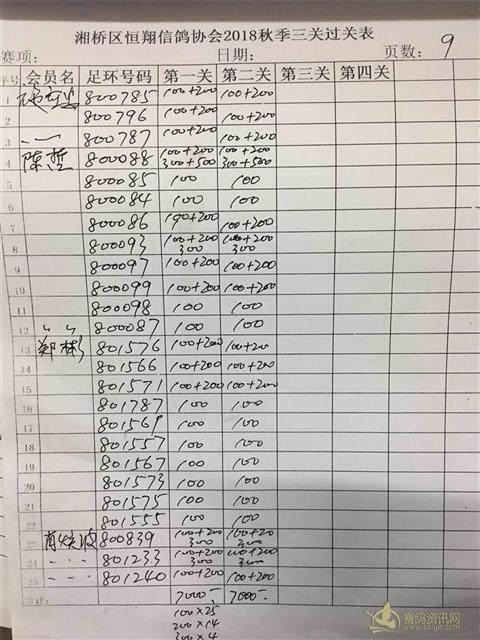 湘桥区恒翔信鸽协会2018秋季三关过关表
赛项: 日期: 页数: 9
序号 会员名 足环号码 第一关 第二关 第三关 第四关
1 800785 100+200 100+200
2 800796 100+200 100+200
3 800787 100+200 100+200
4 陈哲 800088 100+200 300+500 100+200 300+500
5 800085 100 100
6 800084 100 100
7 800086 100+200 100+200
8 800093 100+200 300 100+200 300
9 800097 100+200 100+200
10 800099 100+200 100+200
11 800098 100 100
12 〃 〃 800087 100 100
13 郑彬 801576 100+200 100+200
14 801566 100+200 100+200
15 801571 100+200 100+200
16 801787 100 100
17 801561 100 100
18 801557 100 100
19 801567 100 100
20 801573 100 100
21 801575 100 100
22 801555 100 100
23 肖焕波 800839 100+200 300 100+200 300
24 801233 100+200 300 100+200 300
25 801240 100+200 100+200
合计: 7000- 7000-
100×25
200×14
300×4
赛鸽资讯网
www.saige.com